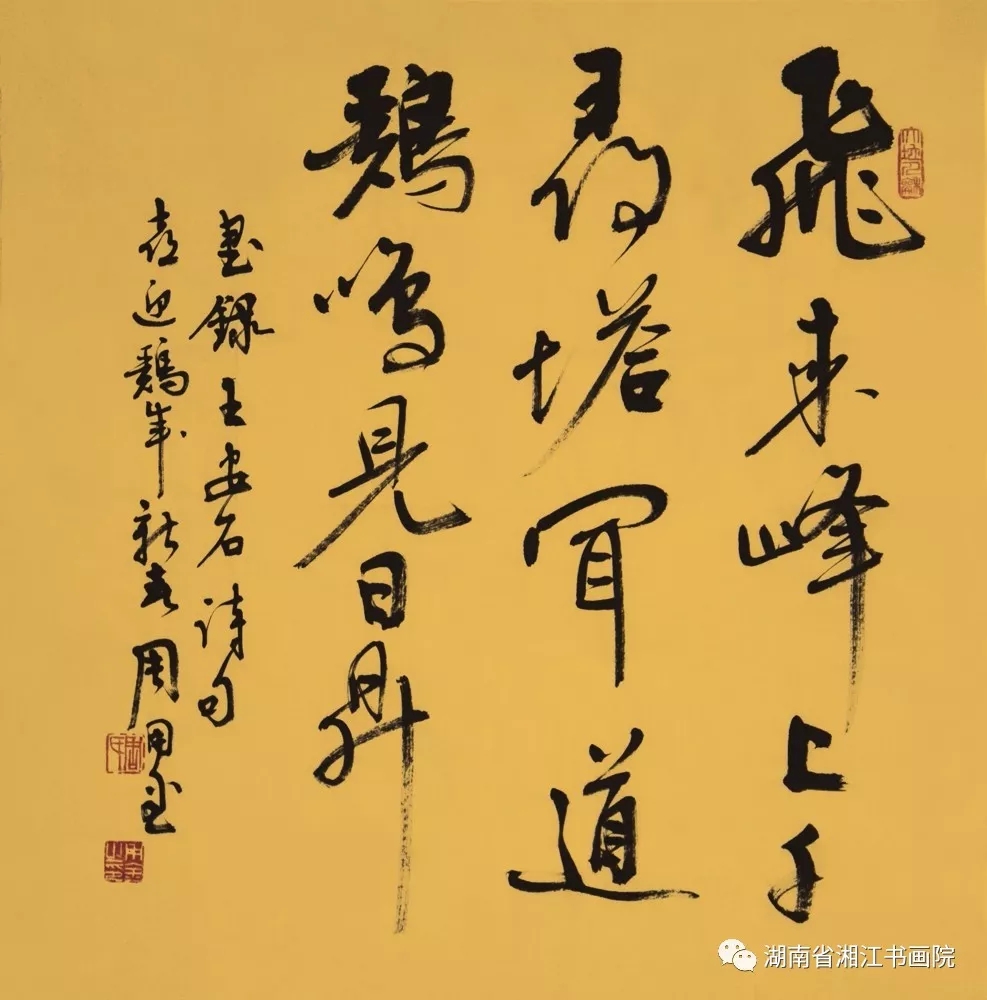 飛来峰上千
尋塔聞道
鷄鳴見日昇
書録王安石詩句
喜迎鷄年新春周用金
湖南省湘江书画院